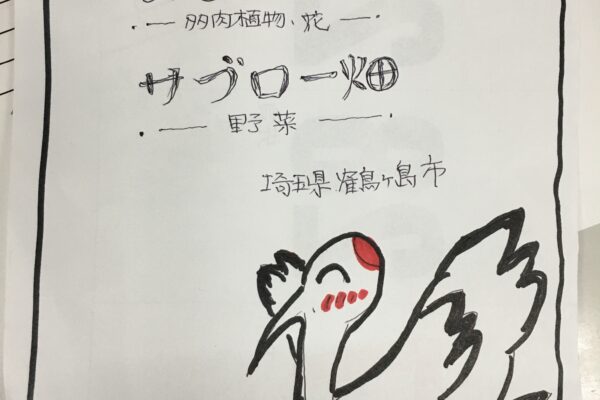 ・― 多肉植物、花 ―・
サブロー畑
・― 野菜 ―・
埼玉県鶴ヶ島市